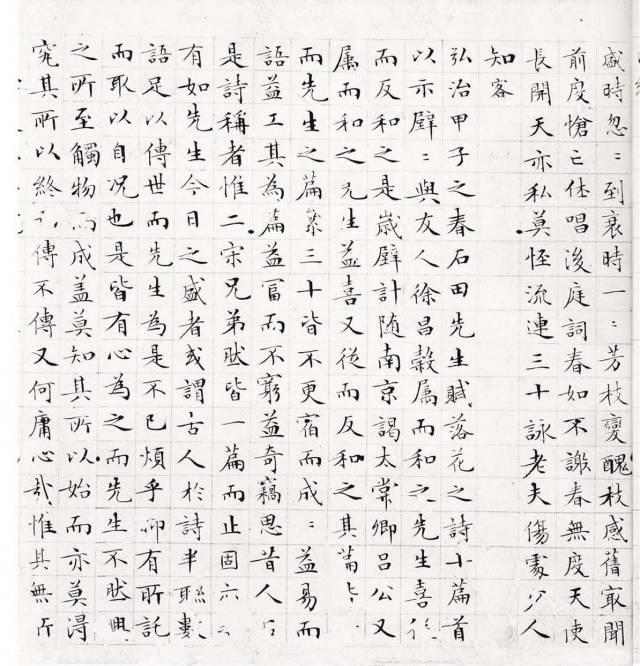 盛時忽〻到衰時一〻芳枝變醜枝感舊冣聞
前度愴亡休唱後庭詞春如不謝春無度天使
長開天亦私莫怪流連三十詠老夫傷處少人
知客
弘治甲子之春石田先生賦落花之詩十篇首
以示璧〻與友人徐昌穀属而和之先生喜從
而反和之是歲璧計随南京謁太常卿呂公又
属而和之先生益喜又從而反和之其篇
而先生之篇絫三十皆不更宿而成〻益易而
語益工其為篇益富而不窮益奇竊思昔人
是詩稱者惟二宋兄弟然皆一篇而止固
有如先生今日之盛者或謂古人於詩半聮數
語足以傳世而先生為是不已煩乎抑有所託
而取以自况也是皆有心為之而先生不然興
之所至觸物而成盖莫知其所以始而亦莫得
究其所以終傳不傳又何庸心哉惟其無所